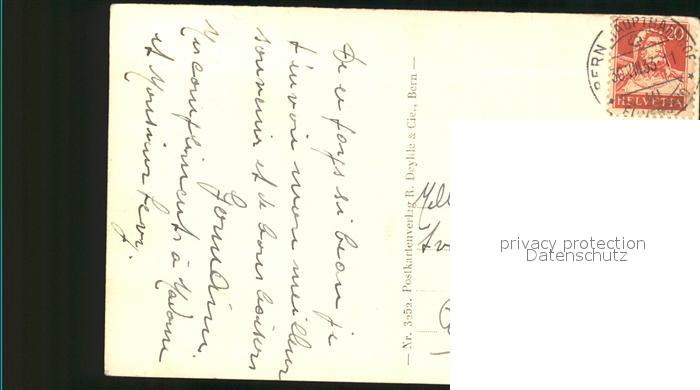 De ce pays si beau je
t'envoie mon meilleur
souvenir et de bons baisers
Germaine.
Mes compliments à Madame
et Monsieur Levy.
— Nr. 3252. Postkartenverlag R. Deyhle & Cie., Bern —
BERN
HELVETIA
20
privacy protection
Datenschutz